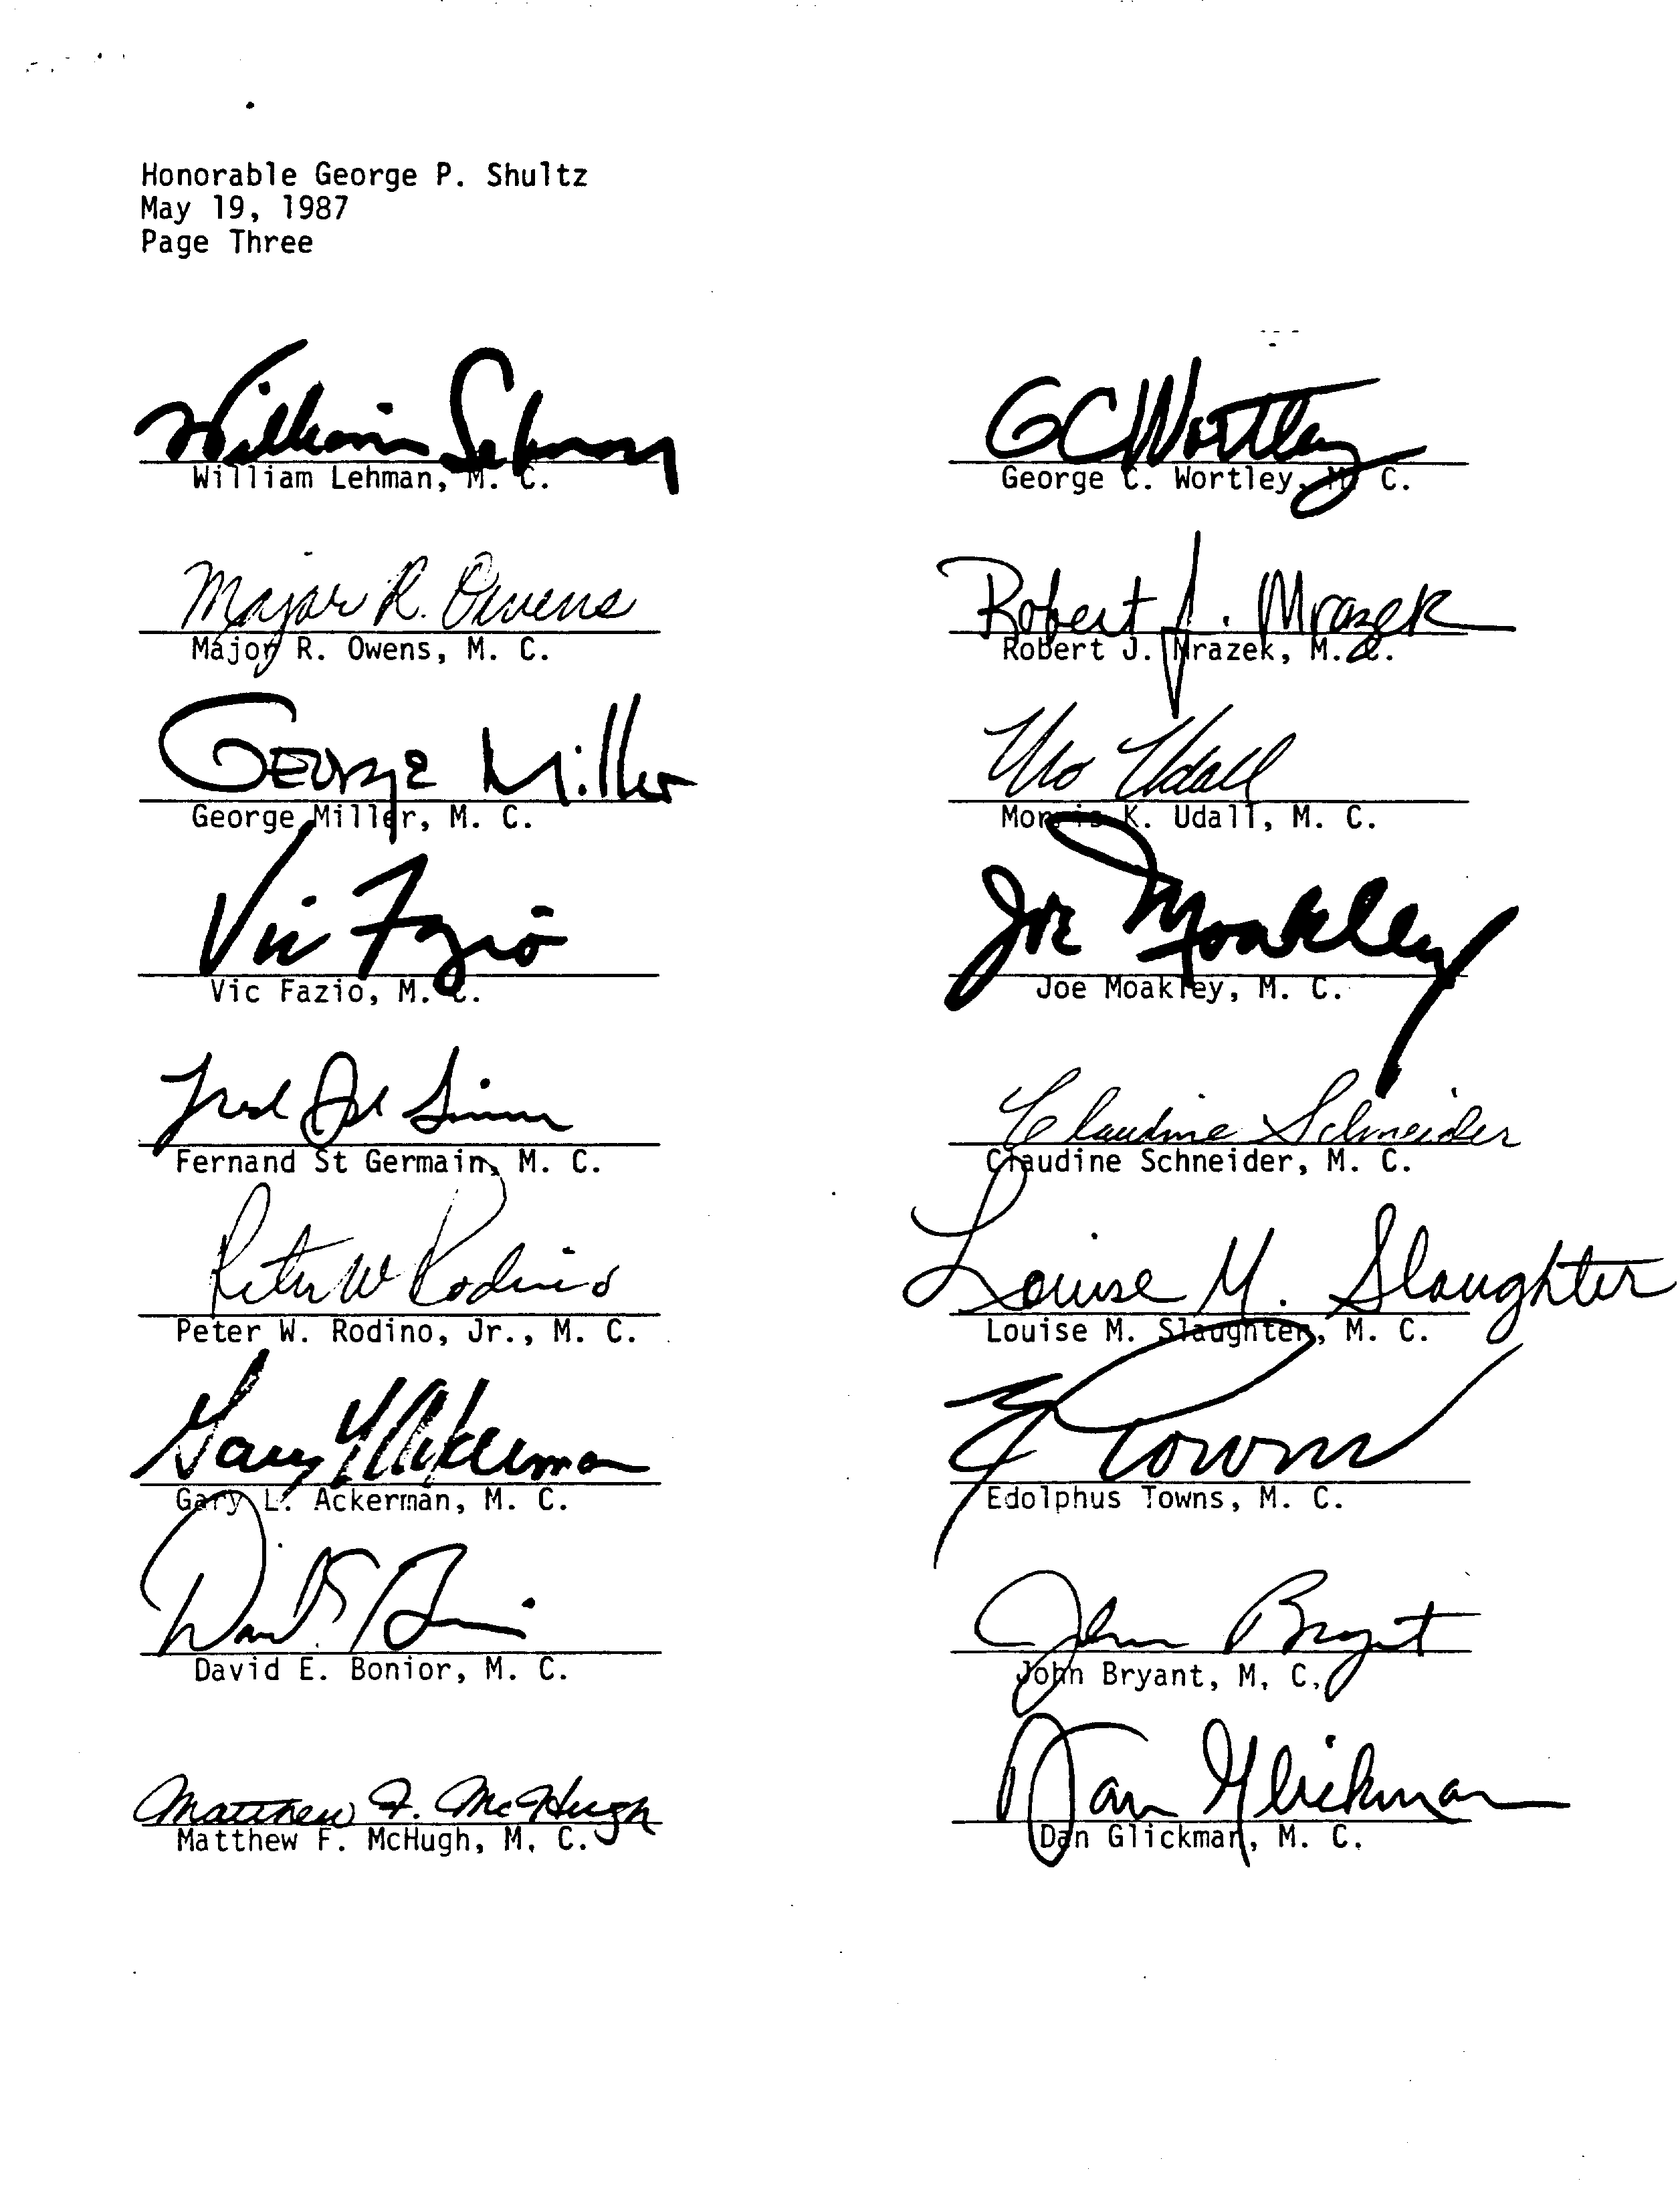 Honorable George P. Shultz
May 19, 1987
Page Three
William Lehman
William Lehman, M. C.
GCWortley
George C. Wortley, M. C.
Major R. Owens
Major R. Owens, M. C.
Robert J. Mrazek
Robert J. Mrazek, M. C.
George Miller
George Miller, M. C.
Mo Udall
Morris K. Udall, M. C.
Vic Fazio
Vic Fazio, M. C.
Joe Moakley
Joe Moakley, M. C.
Fernand St Germain, M. C.
Claudine Schneider
Claudine Schneider, M. C.
Peter W Rodino
Peter W. Rodino, Jr., M. C.
Louise M. Slaughter
Louise M. Slaughter, M. C.
Gary L Ackerman
Gary L. Ackerman, M. C.
E Towns
Edolphus Towns, M. C.
David E Bonior
David E. Bonior, M. C.
John Bryant
John Bryant, M. C.
Matthew F. McHugh
Matthew F. McHugh, M. C.
Dan Glickman
Dan Glickman, M. C.